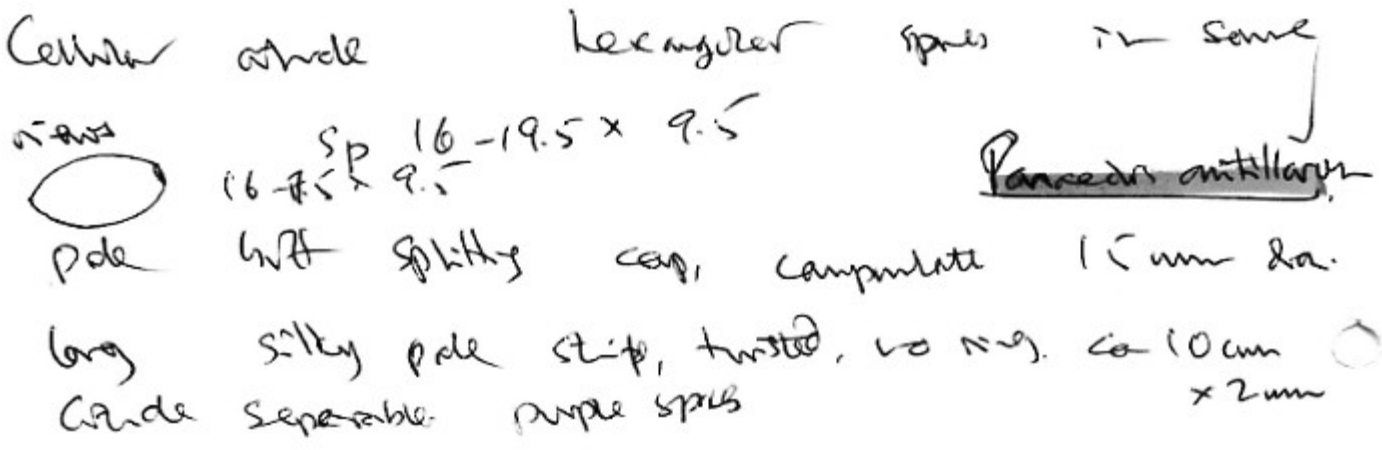 Cellular cuticle hexangular spores in some
views sp 16-19.5 x 9.5
16- x 9.5
Panaeolus antillarum
pale buff splitting cap, campanulate 15 mm dia.
long silky pale stip, twisted, no ring. ca 10 cm
x 2 mm
Cuticle separable purple spores